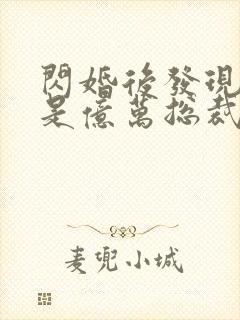 閃婚後發現
是億萬總裁
麦兜小城